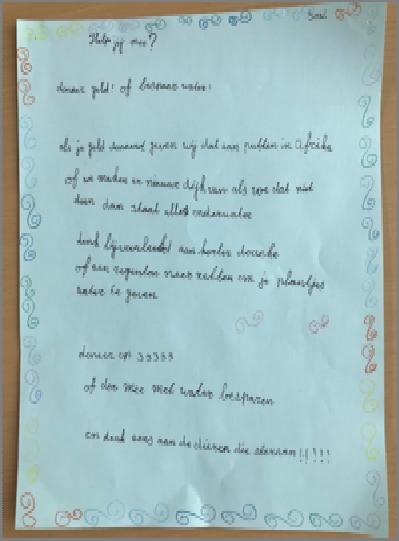 Help jij mee?
doneer geld! of bespaar water!
als je geld doneerd geven wij dat aan putten in Afrika
of we maken er nieuwe dijk van als we dat niet
doen dan staat alles onderwater
denk bijvoorbeeld aan korter douche
of een regenton naar zetten om je plantjes
water te geven
doneer op 33333
of doe mee met water besparen
en denk eens aan de dieren die sterven !!!!!